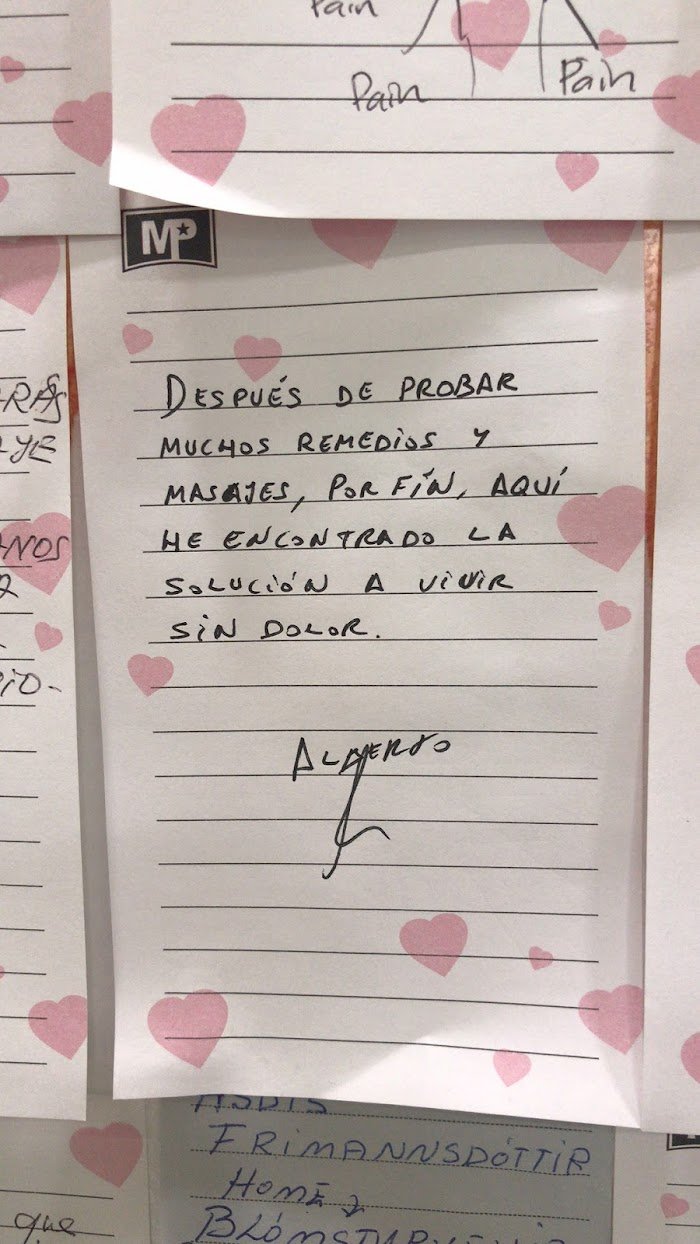 Pain
Pain
Pain
MP
DESPUÉS DE PROBAR
MUCHOS REMEDIOS Y
MASAJES, POR FÍN, AQUÍ
HE ENCONTRADO LA
SOLUCIÓN A VIVIR
SIN DOLOR.
ALBERTO
FRIMANNSDÓTTIR
HOME
que